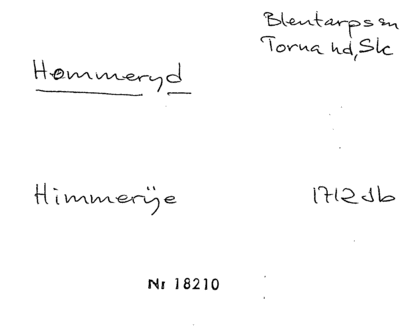 Blentarps sn
Torna hd, Sk
Hommeryd
Himmerÿe
1712 Jb
Nr 18210